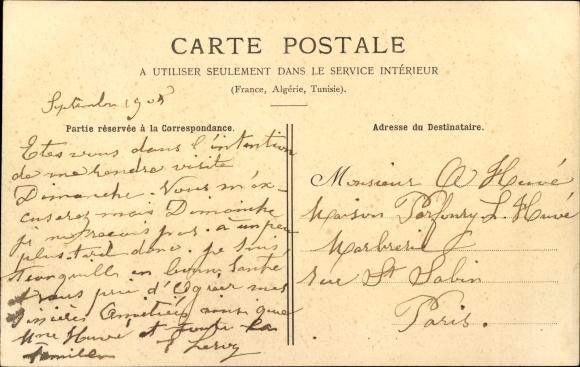 CARTE POSTALE
A UTILISER SEULEMENT DANS LE SERVICE INTÉRIEUR
(France, Algérie, Tunisie).
Partie réservée à la Correspondance.
Septembre 1905
Etes vous dans l'intention
de me rendre visite
Dimanche. Vous m'ex-
cuserez mais Dimanche
je ne reçois pas. a un peu
plus tard donc. je suis
tranquille en bonne santé
et vous prie d'Agréer mes
sincères Amitiés ainsi que
Mme Huvé et toute la
famille
E Leroy
Adresse du Destinataire.
Monsieur A Huvé
Maison Parfonry L. Huvé
Marbrerie
rue St Sabin
Paris.